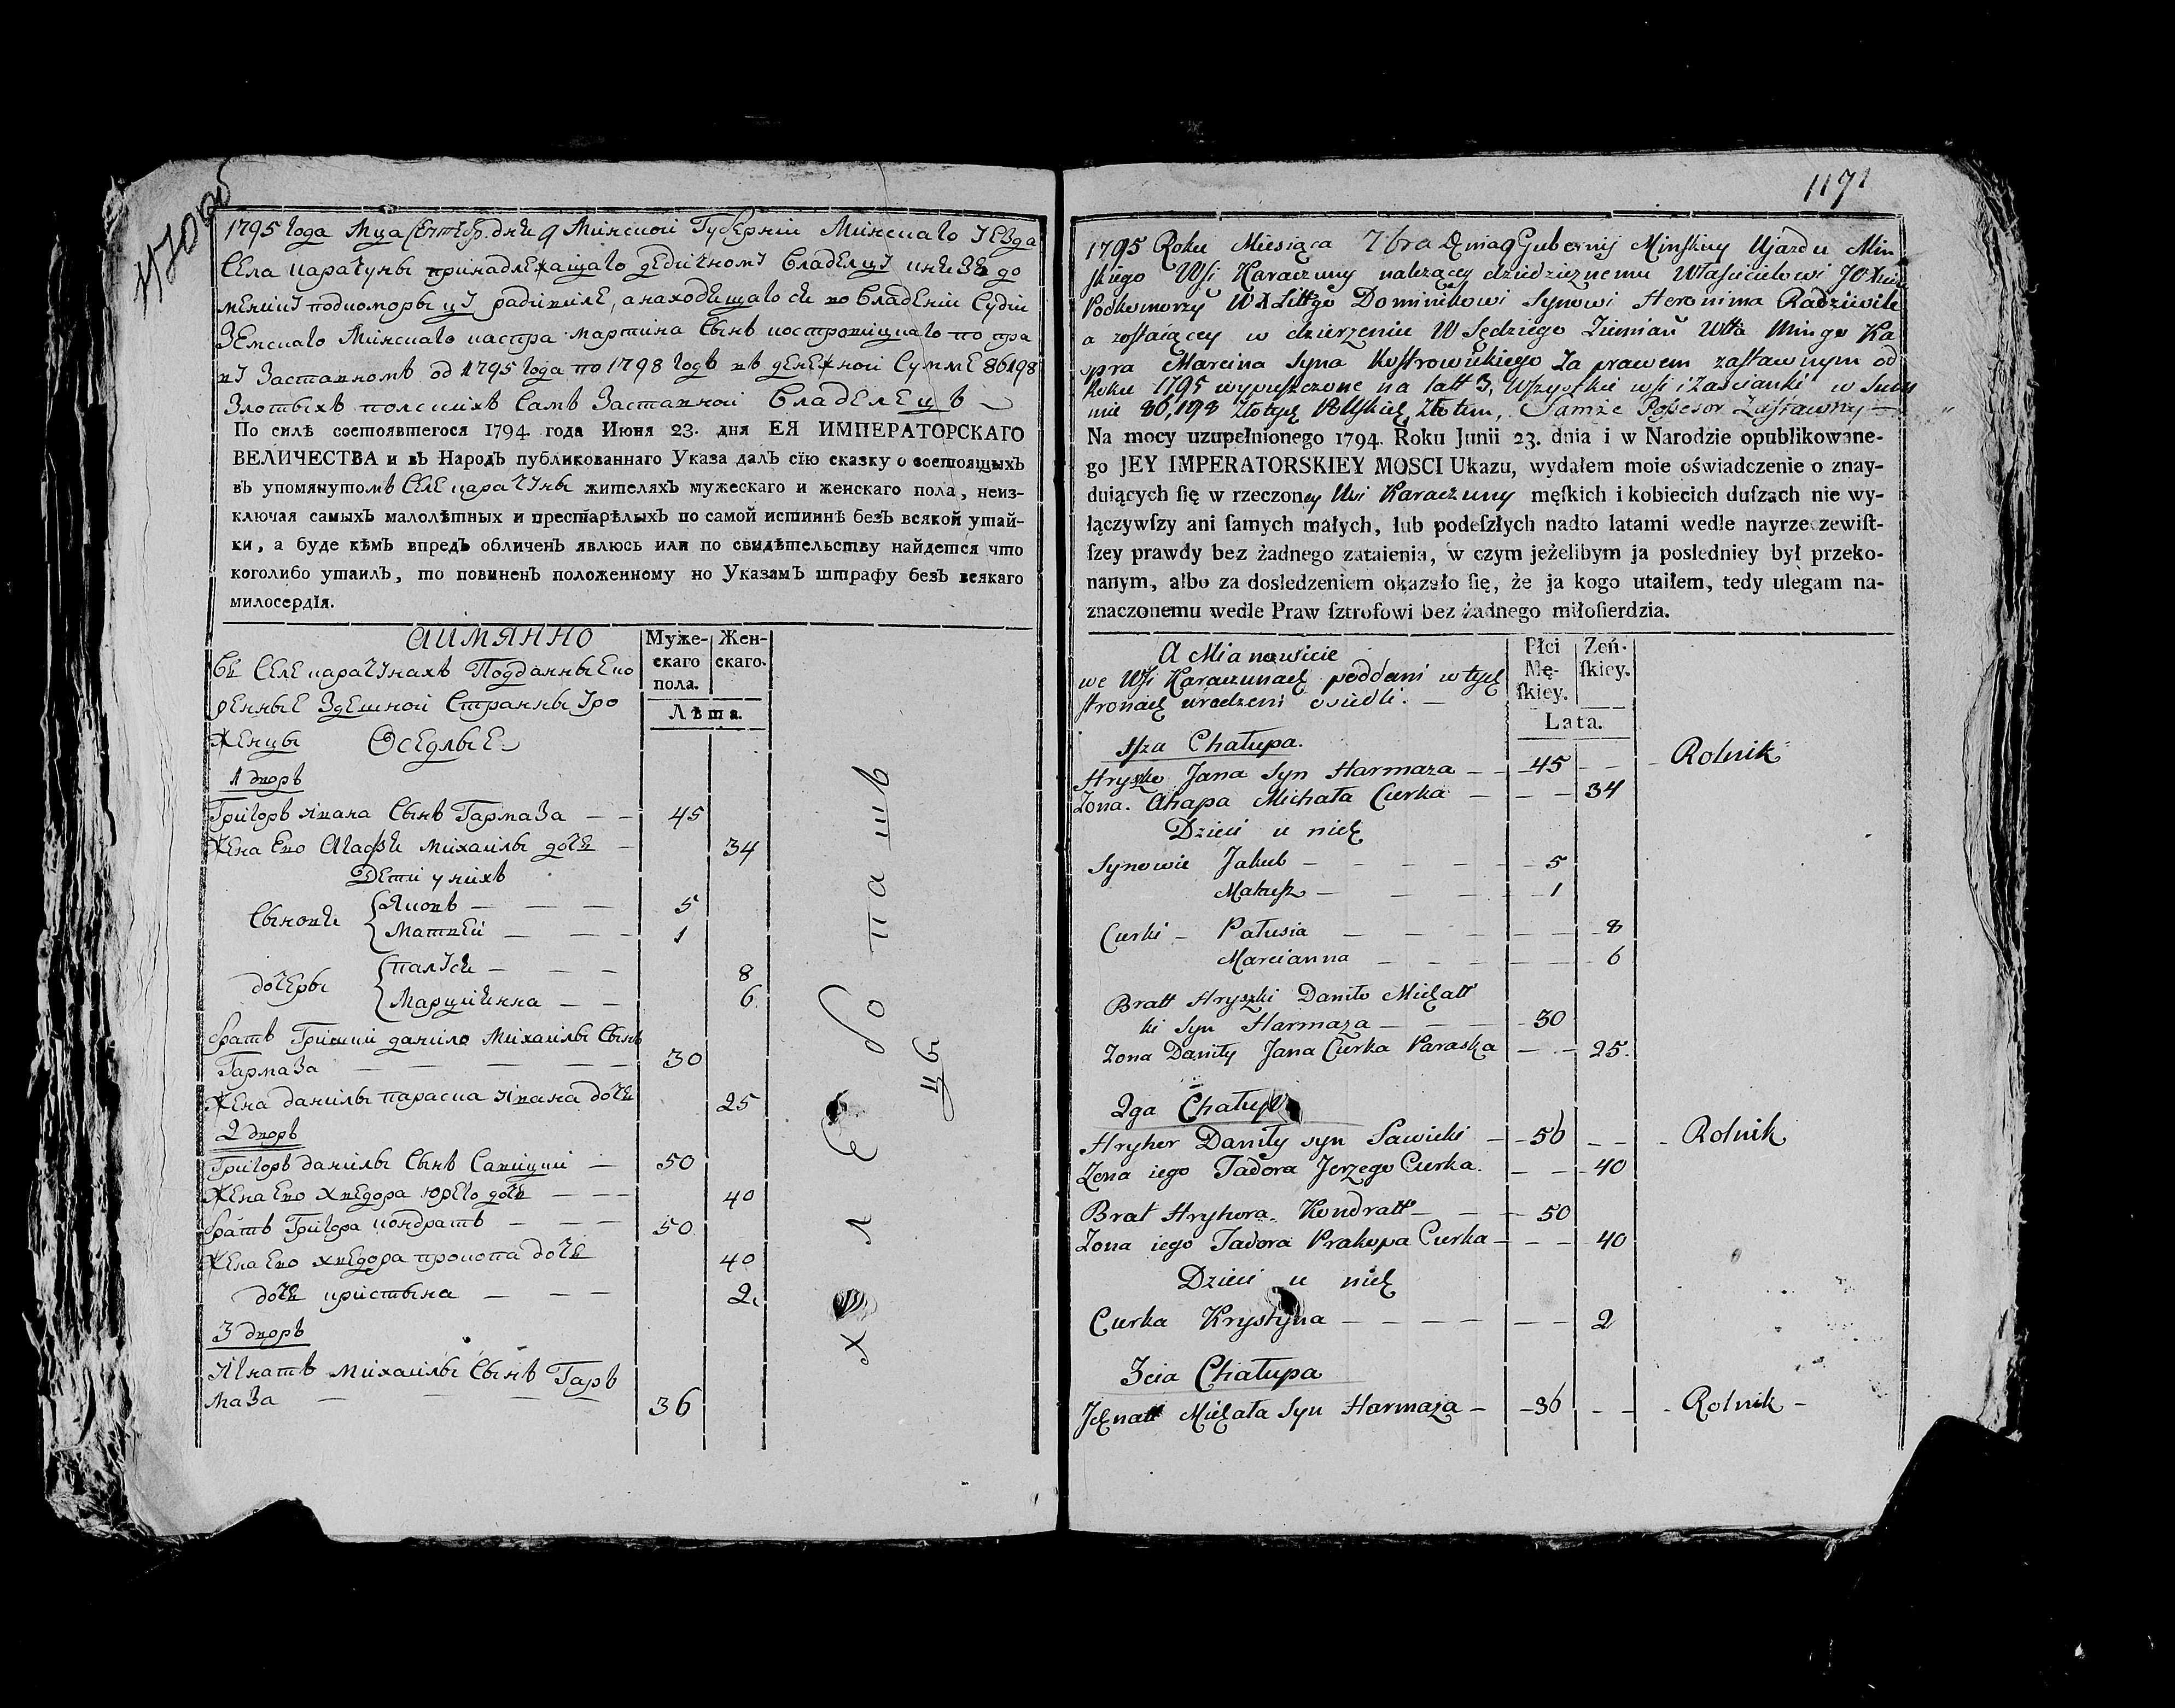 1170 об
1795 года Мца Сентебр. дня 9 Минской Губерніи Минскаго Уезда
Села Карачуны принадлежащаго дедичному Владелцу Князя До
меника подкоморы цу радивиле, а находящаго ся во Владеніи Судіи
Земскаго Минскаго каспра мартина Сынъ костровицкаго по пра
ву Заставномъ од 1795 года по 1798 годъ въ денежной Сумме 86198
Злотыхъ полскихъ Самъ Заставной Владелецъ
По силѣ состоявшегося 1794 года Июня 23. дня ЕЯ ИМПЕРАТОРСКАГО
ВЕЛИЧЕСТВА и въ Народъ публикованнаго Указа далъ сїю сказку о состоящыхъ
въ упомянутомъ Селе карачуны жителяхъ мужескаго и женскаго пола, неиз-
ключая самыхъ малолѣтных и престарѣлыхъ по самой истиннѣ безъ всякой утай-
ки, а буде кѣмъ впредь обличенъ явлюсь или по свидѣтельству найдется что
коголибо утаилъ, то повиненъ положенному по Указамъ штрафу безъ всякаго
милосердїя.
Аимянно
Муже-
скаго
пола.
Жен-
скаго.
Лѣта.
Въ Селе карачунахъ Подданные ко
ренные Здешной Странны Уро
женцы Оседлые
1 дворъ
Григоръ Ивана Сынъ Гармаза — — 45
Жена Ево Агафья Михаилы дочь — 34
Дети у нихъ
Сыновья Яковъ — — — 5
Матвей — — — 1
дочеры палуся — — — 8
Марциянна — — 6
братъ Гришки данило Михаилы Сынъ
Гармаза — — — — 30
Жена данилы параска Ивана дочь 25
2 дворъ
Григоръ данилы Сынъ Савицки — 50
Жена Ево Хведора юрего дочь — — — 40
братъ Григора кондратъ — — — 50
Жена Ево хведора прокопа дочь 40
дочь кристына — — — 2
3 дворъ
Игнатъ Михаилы Сынъ Гаръ
маза — — — — 36
хлебопашъ
цы
1171
1795 Roku Miesiąca 7bra Dnia 9 Gubernij Minſkiey Ujazdu Min
ſkiego Wſi Karaczuny należącey dziedzicznemu Właſcicielowi JO Xciu
Podkomorzy W X Littgo Dominikowi Synowi Heronima Radziwile
a zoſtaiącey w dzierzeniu W Sędziego Ziemian Wtta Mingo Ka
spra Marcina Syna Koſtrowickiego Za prawem zaſtawnym od
Roku 1795 wypuſzczone na latt 3, Wſzyſtkie wſi i Zascianki w Sum
mie 86,198 Złotych Polſkich Złotem, Samże Poſseſor Zaſtawny —
Na mocy uzupełnionego 1794. Roku Junii 23. dnia i w Narodzie opublikowane-
go JEY IMPERATORSKIEY MOSCI Ukazu, wydałem moie oświadczenie o znay-
duiących ſię w rzeczoney Wsi Karaczuny męſkich i kobiecich duſzach nie wy-
łączywſzy ani ſamych małych, łub podeſzłych nadto latami wedle nayrzeczewiſt-
ſzey prawdy bez żadnego zataienia, w czym jeżelibym ja posledniey był przeko-
nanym, albo za dosledzeniem okazało ſię, że ja kogo utaiłem, tedy ulegam na-
znaczonemu wedle Praw ſztrofowi bez żadnego miłoſierdzia.
A Mianowicie
Płci
Mę-
ſkiey.
Zeń-
ſkiey.
Lata.
we Wſi Karaczunach poddani w tych
ſtronach urodzeni osiedli. —
1ſza Chałupa.
Hryszko Jana Syn Harmaza — — 45 — — Rolnik
Zona. Ahapa Michała Curka — — — 34
Dzieci u nich
Synowie Jakub — — — — — 5
Makuſz — — — — 1
Curki — Pałusia — — — — — 8
Marcianna — — — — — 6
Bratt Hryszki Daniło Michatt
ki Syn Harmaza — — — 30
Zona Daniły Jana Curka Paraska — — 25.
2ga Chałupa
Hryhor Daniły syn Sawicki — 50 — — Rolnik
Zona iego Tadora Jerzego Curka. — — — 40
Brat Hryhora. Kondratt — — — 50
Zona iego Tadora Prakopa Curka — — — 40
Dzieci u nich
Curka Krystyna — — — — — — 2
3cia Chałupa
Jchnatt Michała Syn Harmaza — 36 — — Rolnik —